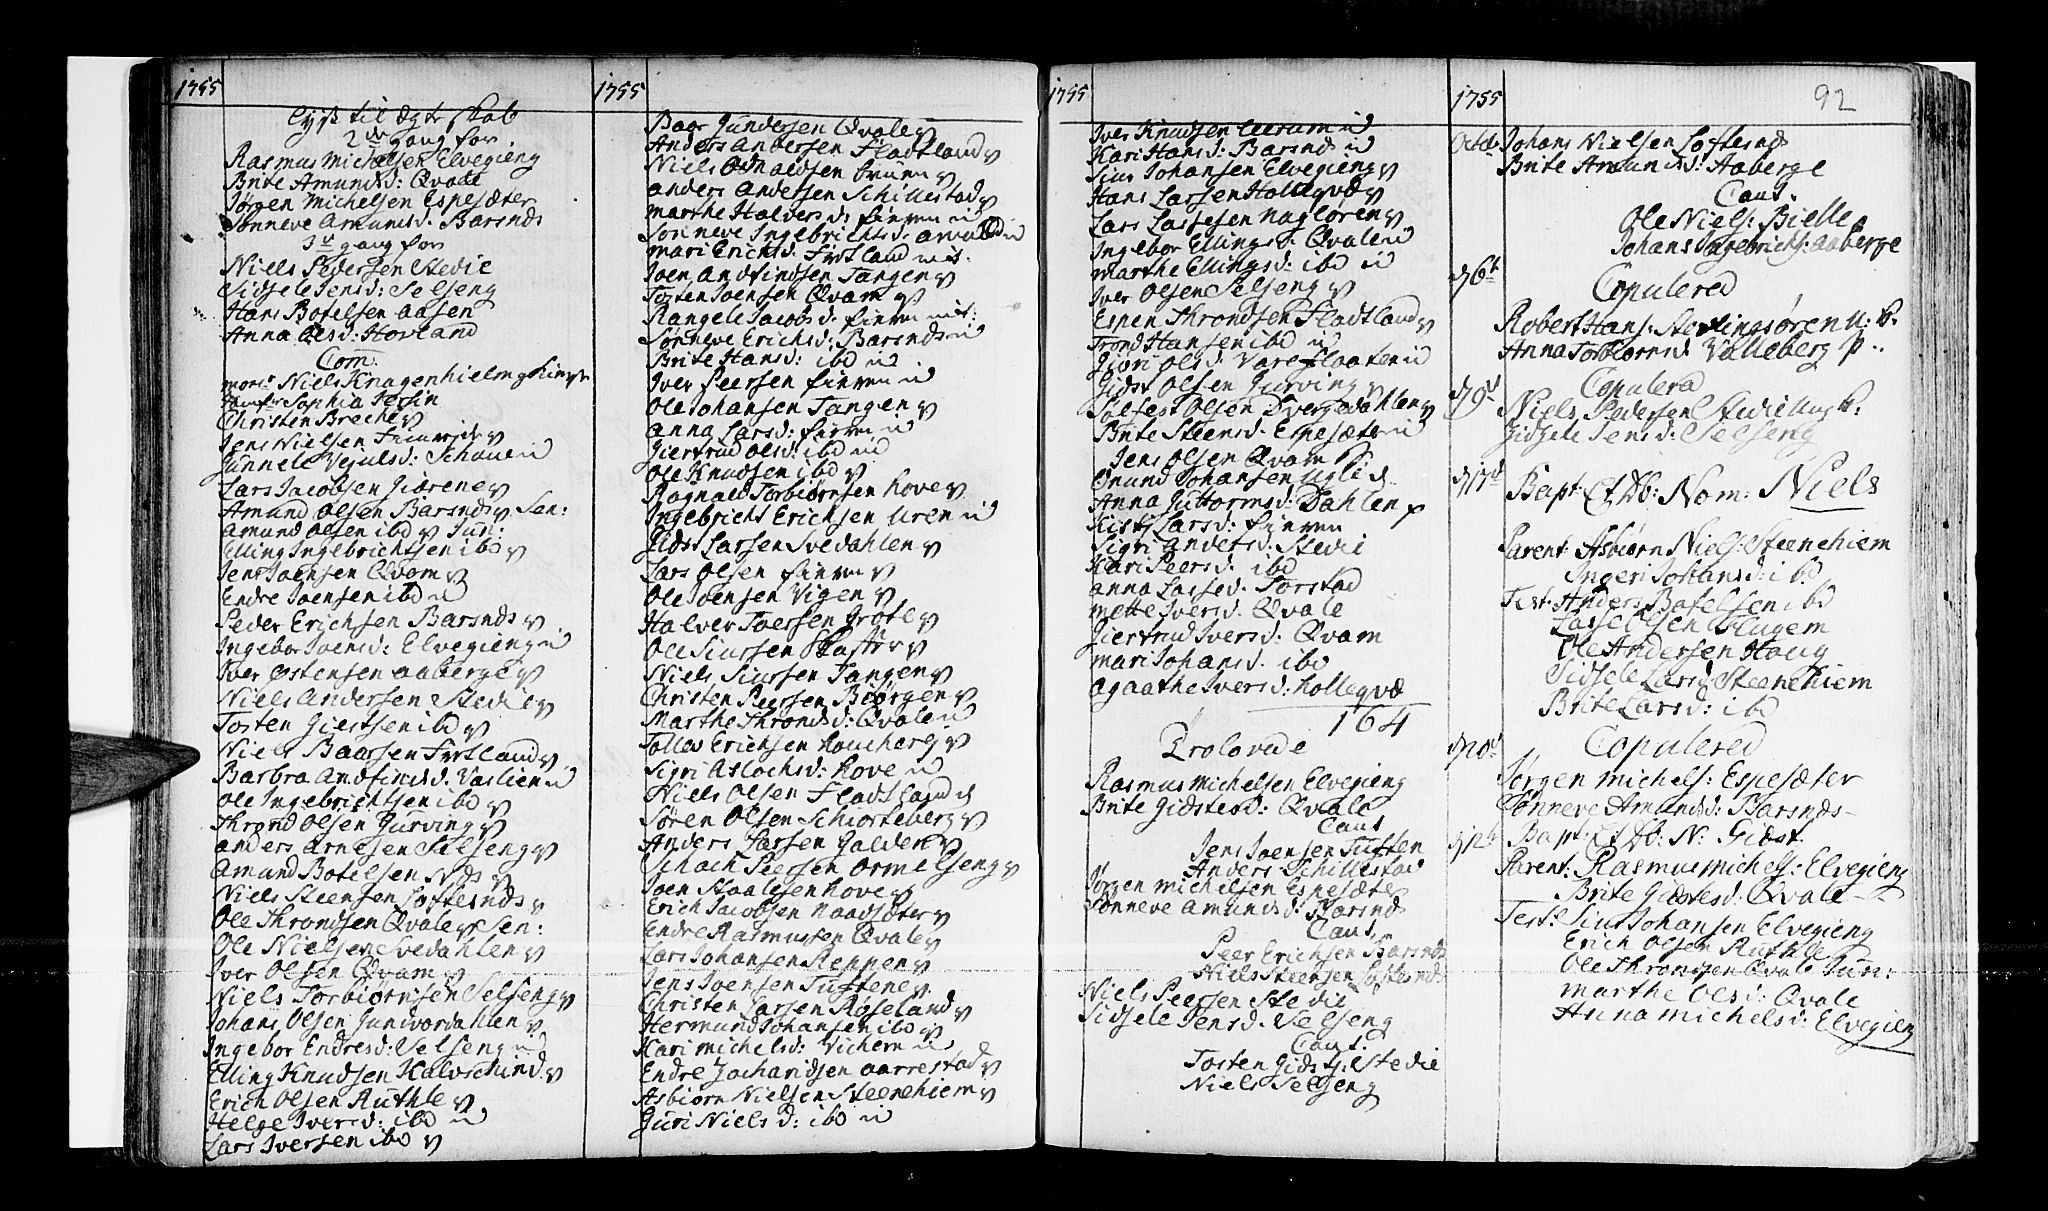 1755
Lyst til Ægteskab
2den gang for
Rasmus Michelsen Elvegieng
Brite Amundsd: Qvale
Jørgen Michelsen Espesæter
Sønneve Amunds d. Barsnds
3de gang for
Niels Pedersen Stedie
Sidsele Jens d: Selseng
Hans Botelsen Aasen
Anna Ols d. Hovland
Com:
Niels Knagenhielm
Sophia
Christen Breche
Jens Nielsen
Gunnele d: Schouen
Lars Jacobsen Giørene
Amund Olsen Barsnds Sen:
Amund Olsen ibd Jun:
Elling Ingebrichtsen ibd
Jens Joensen Qvam
Endre Joensen ibd
Peder Erichsen Barsnds
Ingebor Joens d: Elvegieng
Iver Østensen Aaberge
Niels Andersen Stedie
Tosten Giertsen ibd
Niels Baarsen Fristland
Barbra Andfinds d: Vaslien
Ole Ingebrichtsen ibd
Thrond Olsen Gurving
Anders Arnesen Selseng
Amund Botelsen Nds
Niels Steensen Loftesnds
Ole Throndsen Qvale Sen:
Ole Nielsen Svedahlen
Iver Olsen Qvam
Niels Torbiørnsen Selseng
Johans Olsen Gundvordahlen
Ingebor Endres d: Selseng
Elling Knudsen Kalvschind
Erich Olsen Ruthle
Helge Ivers d: ibd
Lars Iversen ibd
1755
Baar Gundersen Qvale
Anders Andersen Fladtland
Niels Osvaldsen
Anders Andersen Schillestad
Marthe Halvers d: Fimren
Sønneve Ingebrichts d.
Mari Erichs d: Fristland
Joen Andfindsen Tangen
Tosten Joensen Qvam
Rangele Jacobs d. Fimren
Sønneve Erichs d: Barsnds
Brite Hans d: ibd
Iver Peersen Fimren
Ole Johansen Tangen
Anna Lars d: Fimren
Giertrud Ols d: ibd
Ole Knudsen ibd
Ragnald Torbiørnsen Hove
Ingebricht Erichsen Uren
Gidst Larsen Svedahlen
Lars Olsen Fimren
Ole Joensen Vigen
Halver Joersen Grote
Ole Siursen Skaster
Niels Siursen Tangen
Christen Peersen Biørgen
Marthe Thronds d: Qvale
Tollos Erichsen Houcharg
Sigri Aslochs d: Hove
Niels Olsen Fladtland
Søren Olsen Schiorteberg
Anders Larsen Galden
Schach Peersen Ormelseng
Joen Staalesen Hove
Erich Jacobsen Naadsæter
Endre Rasmussen Qvale
Lars Johansen Reppen
Jens Joensen Tuftene
Christen Larsen Røseland
Hermund Johansen ibd
Kari Michels d: Vichem
Endre Zachariæsen Aarrestad
Asbiørn Nielsen Steenehiem
Guri Niels d: ibd
1755
Iver Knudsen
Kari Hans d: Barsnd
Siur Johansen Elvegieng
Hans Larsen Hollegvæ
Lars Lassesen Nagløren
Ingebor Ellings d. Qvale
Marthe Ellings d: ibd
Iver Olsen Selseng
Espen Throndsen Fladtland
Trond Hansen ibd
Guri Ols d: Vareflaaten
Gidst Olsen Gurving
Solfest Olsen Dvergedahlen
Brite Steens d. Espesæter
Jens Olsen Qvam
Ønund Johansen Uglid
Anna Guttorms d: Dahlen
Kisti Lars d: Fimren
Sigri Anders d: Stedi
Kari Peers d: ibd
Anna Lasse d. Torstad
Mette Ivers d. Qvale
Giertrud Ivers d: Qvam
Mari Johans d. ibd
Agaathe Ivers d: Hollegvæ
164
Trolovede
Rasmus Michelsen Elvegieng
Brite Gidstes d: Qvale
Caut
Jens Joensen Tuften
Anders Schillestad
Jørgen Michelsen Espesæter
Sønneve Amunds d: Barsnds
Caut
Peer Erichsen Barsnds
Niels Steensen Loftesnds
Niels Peersen Stedie
Sidsele Jens d. Selseng
Caut.
Tosten Gidsts: Stedie
Niels Selseng
1755
92
Octbr Johans Nielsen Loftesnds
Brite Amunds d: Aaberge
Caut.
Ole Niels: Bielle
Johans Ingebrichts: Aaberge
d 6t Copulered
Robert Hans: Stedingsøren U: k:
Anna Torbiørns d. Valleberg P.
d 9d Copulera
Niels Pedersen Stedie Ung k:
Sidsele Jens d: Selseng
Bapt: Et Db: Nom: Niels
Parent: Asbiørn Niels: Steenehiem
Ingeri Johans d: ibd
Test: Anders Botelsen ibd
Lasse Olsen Flugem
Ole Andersen Haug
Sidsele Lars d: Steenehiem
Brite Lars d: ibd
Copulered
Jørgen Michels: Espesæter
Sønneve Amunds d: Barsnds
Bapt: Et Db: N: Gidst
Parent: Rasmus Michels: Elvegieng
Brite Gidstes d: Qvale
Test: Siur Johansen Elvegieng
Erich Olsen Ruthle
Ole Throndsen Qvale Jun:
Marthe Ols d: Qvale
Anna Michels d: Elvegieng